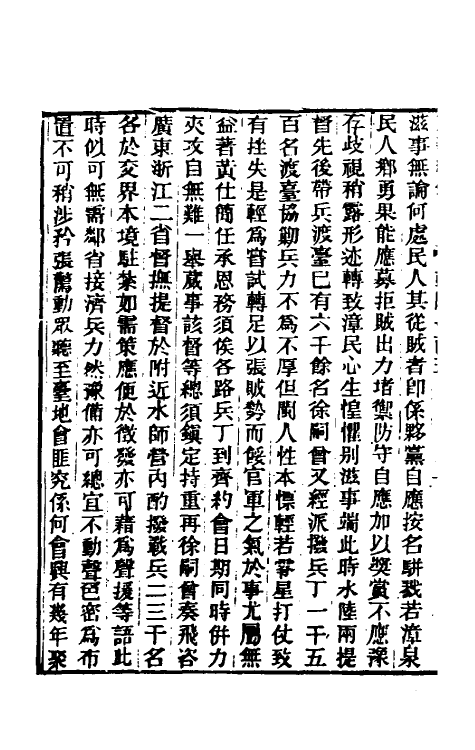 滋事無論何處民人其從賊者卽係夥黨自應按名駢戮若漳泉
民人鄉勇果能應募拒賊出力堵禦防守自應加以獎賞不應豫
存歧視稍露形迹轉致漳民心生惶懼别滋事端此時水陸兩提
督先後帶兵渡臺已有六千餘名徐嗣曾又經派撥兵丁一千五
百名渡臺協勦兵力不為不厚但閩人性本慓輕若零星打仗致
有挫失是輕為嘗試轉足以張賊勢而餒官軍之氣於事尤屬無
益著黃仕簡任承恩務須俟各路兵丁到齊約會日期同時併力
夾攻自無難一舉蕆事該督等總須鎭定持重再徐嗣曾奏飛咨
廣東浙江二省督撫提督於附近水師營內酌撥戰兵二三千名
各於交界本境駐紮如需策應便於徵發亦可藉為聲援等語此
時似可無需鄰省接濟兵力然豫備亦可總宜不動聲色密為布
置不可稍涉矜張驚動眾聽至臺地會匪究係何會興有幾年聚